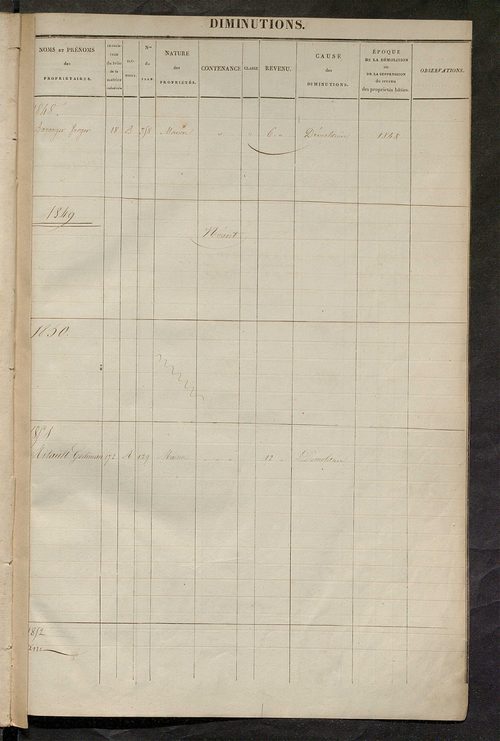 DIMINUTIONS.
NOMS et PRÉNOMS
des
PROPRIÉTAIRES.
de la
Nos
du
PLAN.
NATURE
des
PROPRIÉTÉS.
CONTENANCE
CLASSE
REVENU.
CAUSE
des
DIMINUTIONS.
ÉPOQUE
DE LA DÉMOLITION
OU
DE LA SUPPRESSION
du revenu
des propriétés bâties.
OBSERVATIONS.
1848.
18 758 Maison " " 6 " Démolition 1848
1849
Néant
1850
1851
172 A 129 Maison 12 Démolition
1852